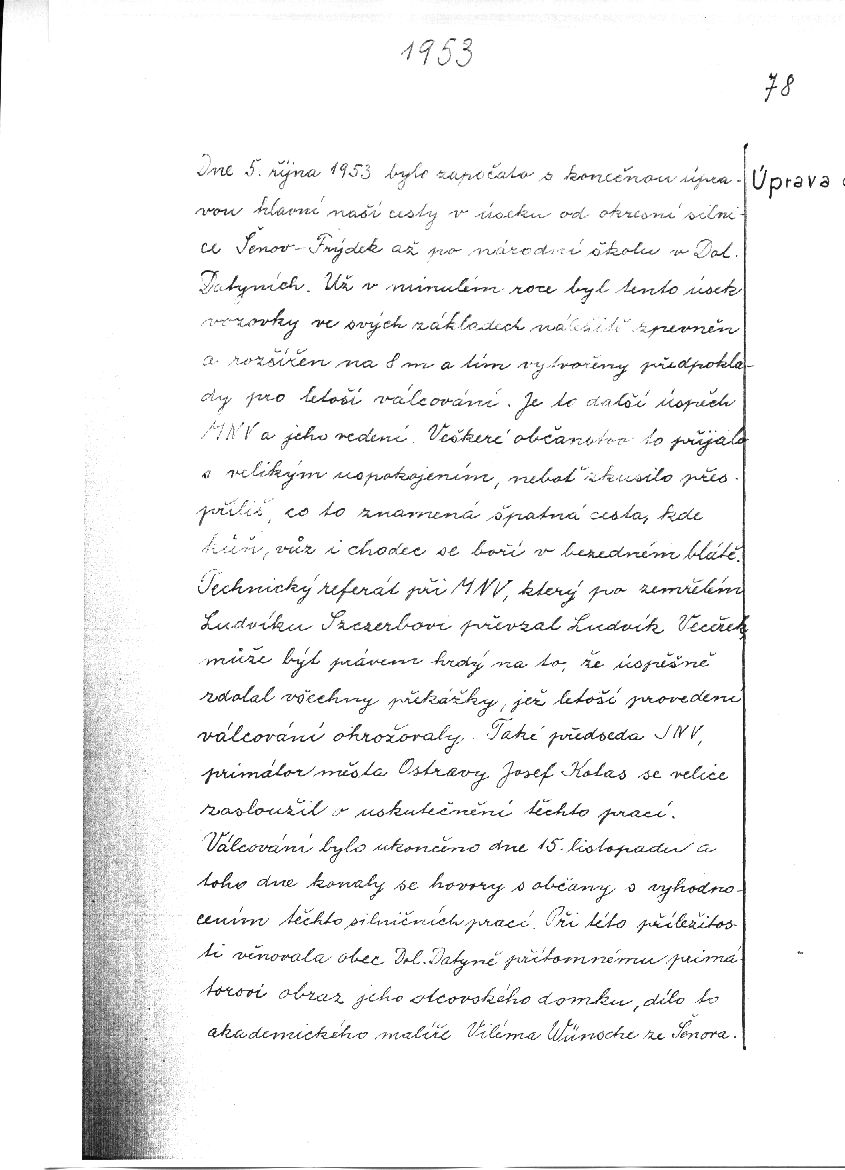 1953
78
Dne 5. října 1953 bylo započato s konečnou úpra-
Úprava
vou hlavní naší cesty v úseku od okresní silni-
ce Šenov-Frýdek až po národní školu v Dol.
Datyních. Už v minulém roce byl tento úsek
vozovky ve svých základech náležitě zpevněn
a rozšířen na 8 m a tím vytvořeny předpokla-
dy pro letoší válcování. Je to další úspěch
MNV a jeho vedení. Veškeré občanstvo to přijalo
s velikým uspokojením, neboť zkusilo přes-
příliš, co to znamená špatná cesta, kde
kůň, vůz i chodec se boří v bezedném blátě.
Technický referát při MNV, který po zemřelém
Ludvíku Szczerbovi převzal Ludvík Vecěřek,
může být právem hrdý na to, že úspěšně
zdolal všechny překážky, jež letoší provedení
válcování ohrožovaly. Také předseda JNV,
primátor města Ostravy Josef Kotas se velice
zasloužil o uskutečnění těchto prací.
Válcování bylo ukončeno dne 15. listopadu a
toho dne konaly se hovory s občany s vyhodno-
cením těchto silničních prací. Při této příležitos-
ti věnovala obec Dol. Datyně přítomnému primá-
torovi obraz jeho otcovského domku, dílo to
akademického malíře Viléma Wünsche ze Šenova.